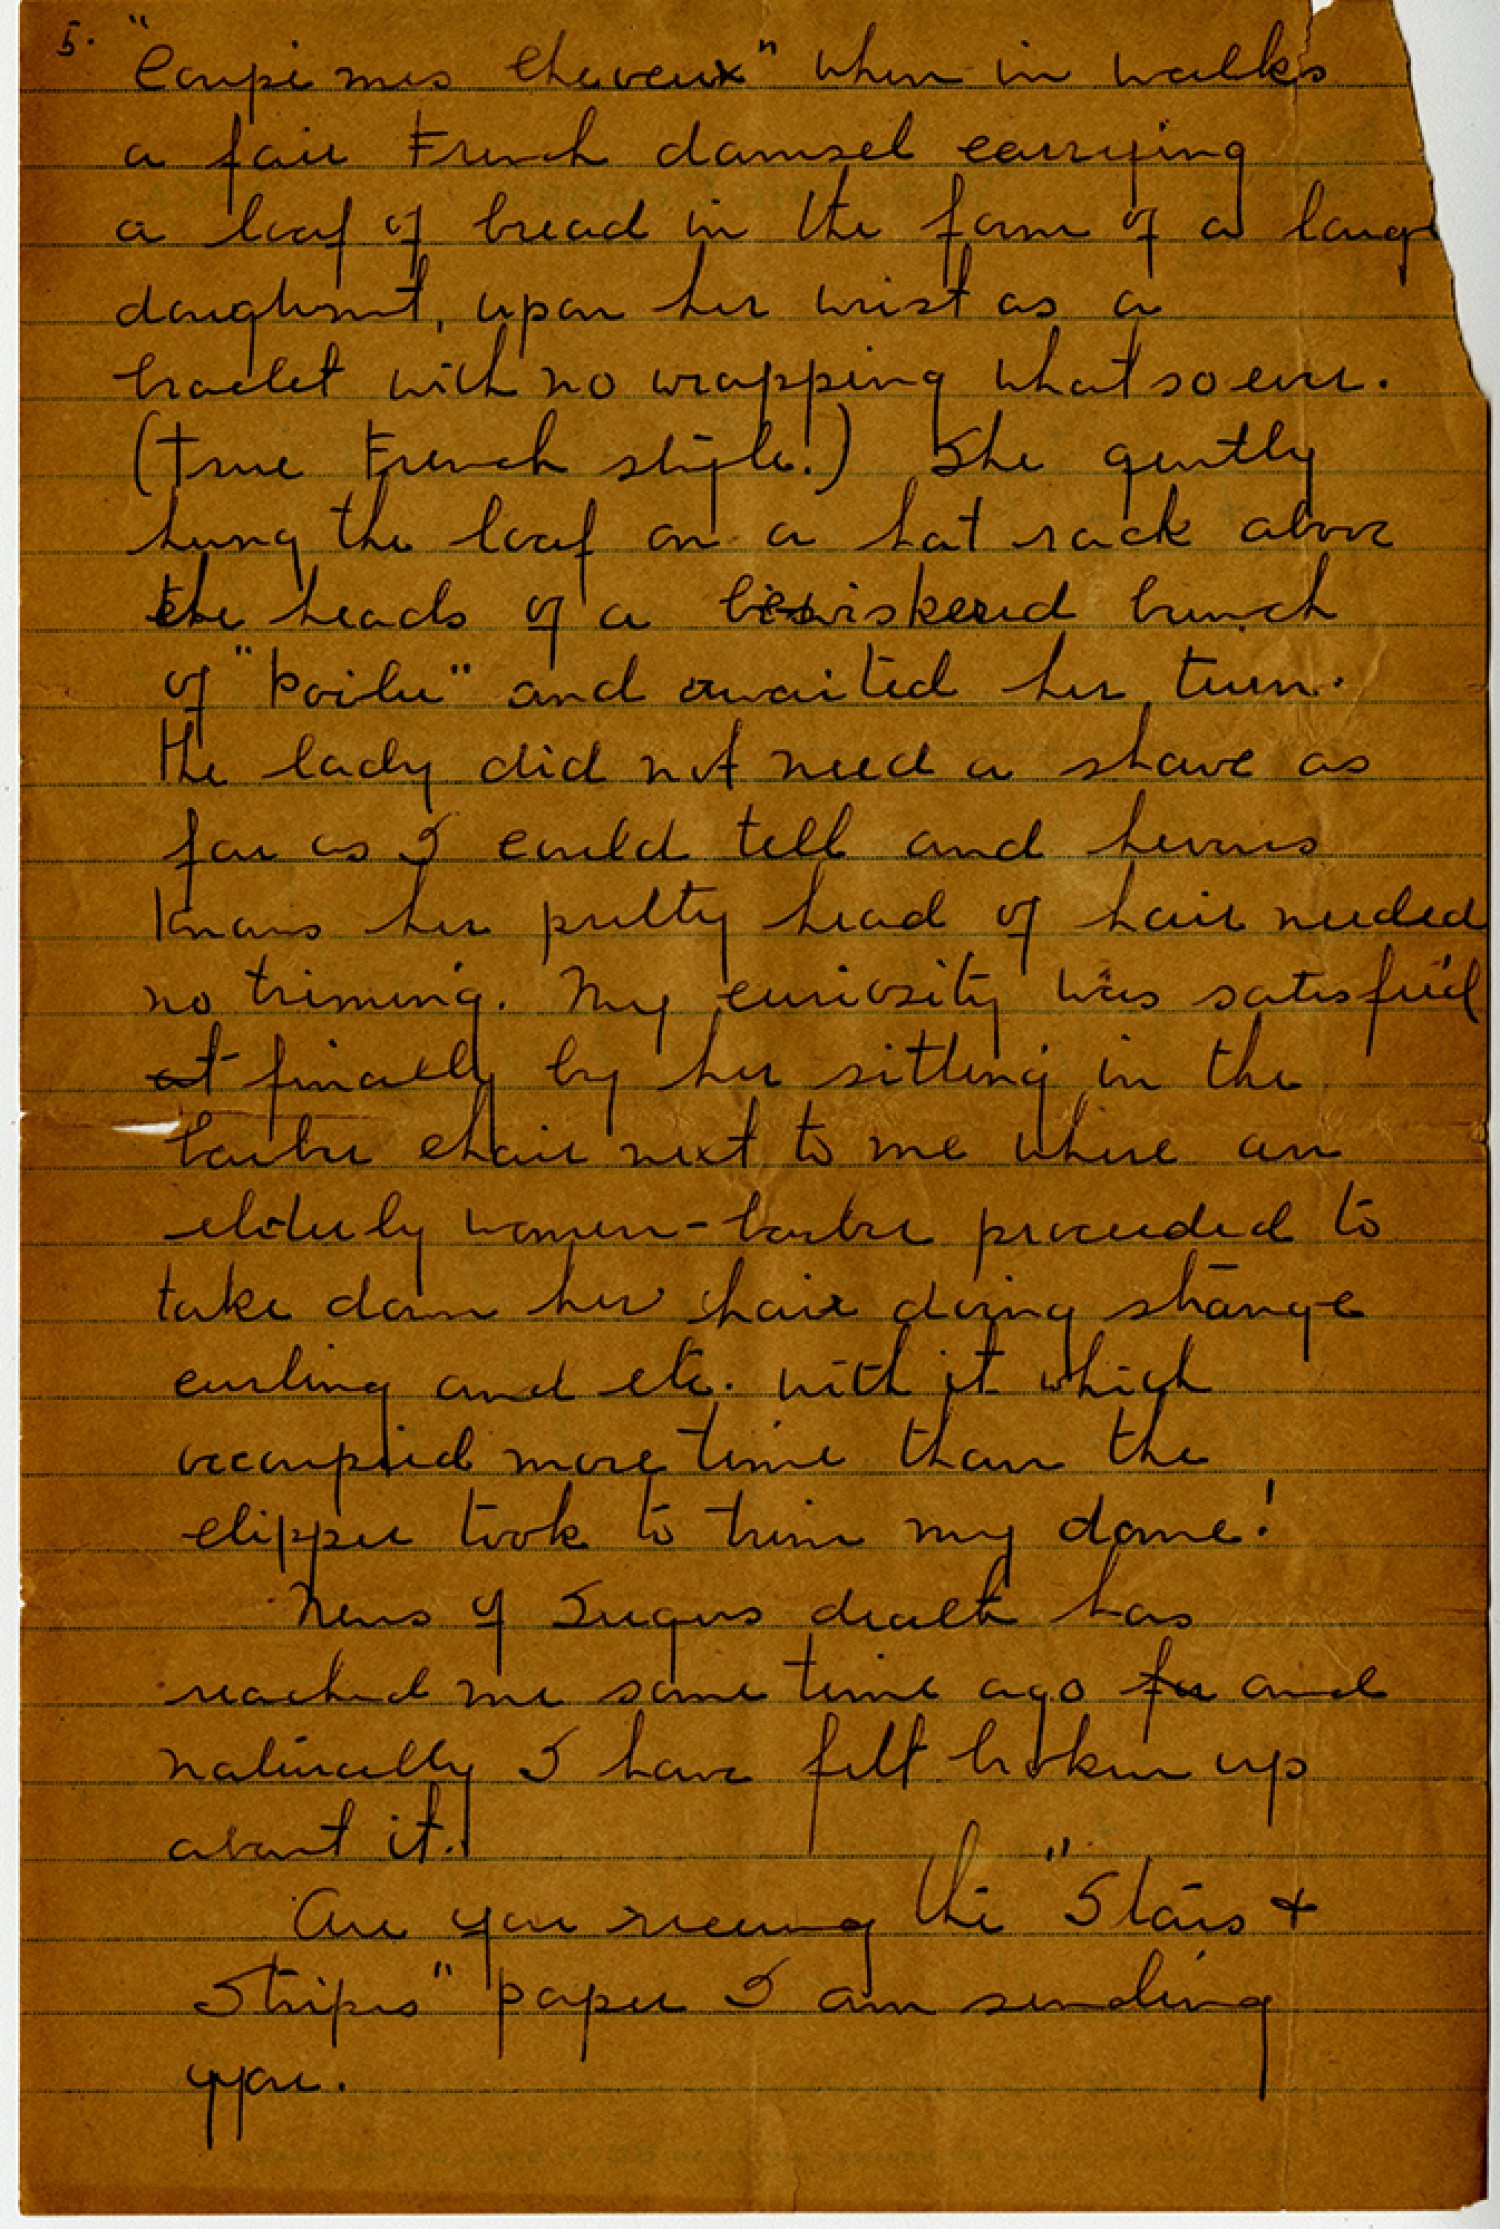 5. "Coupe mes cheveux" when in walks
a fair French damsel carrying
a loaf of bread in the form of a large
doughnut, upon her wrist as a
braclet with no wrapping what so ever.
(true French style!) She gently
hung the loaf on a hat rack above
the heads of a bewiskered bunch
of "Poilu" and awaited her turn.
The lady did not need a shave as
far as I could tell and hevens
knows her pretty head of hair needed
no triming. My curiosity was satisfied
at finally by her sitting in the
barber chair next to me where an
elderly women-barber proceeded to
take down her hair doing strange
curling and etc. with it which
occoupied more time than the
clipper took to trim my dome!
News of death has
reached me some time ago for and
naturally I have felt broken up
about it.
Are you receving the "Stars +
Stripes" paper I am sending
you.